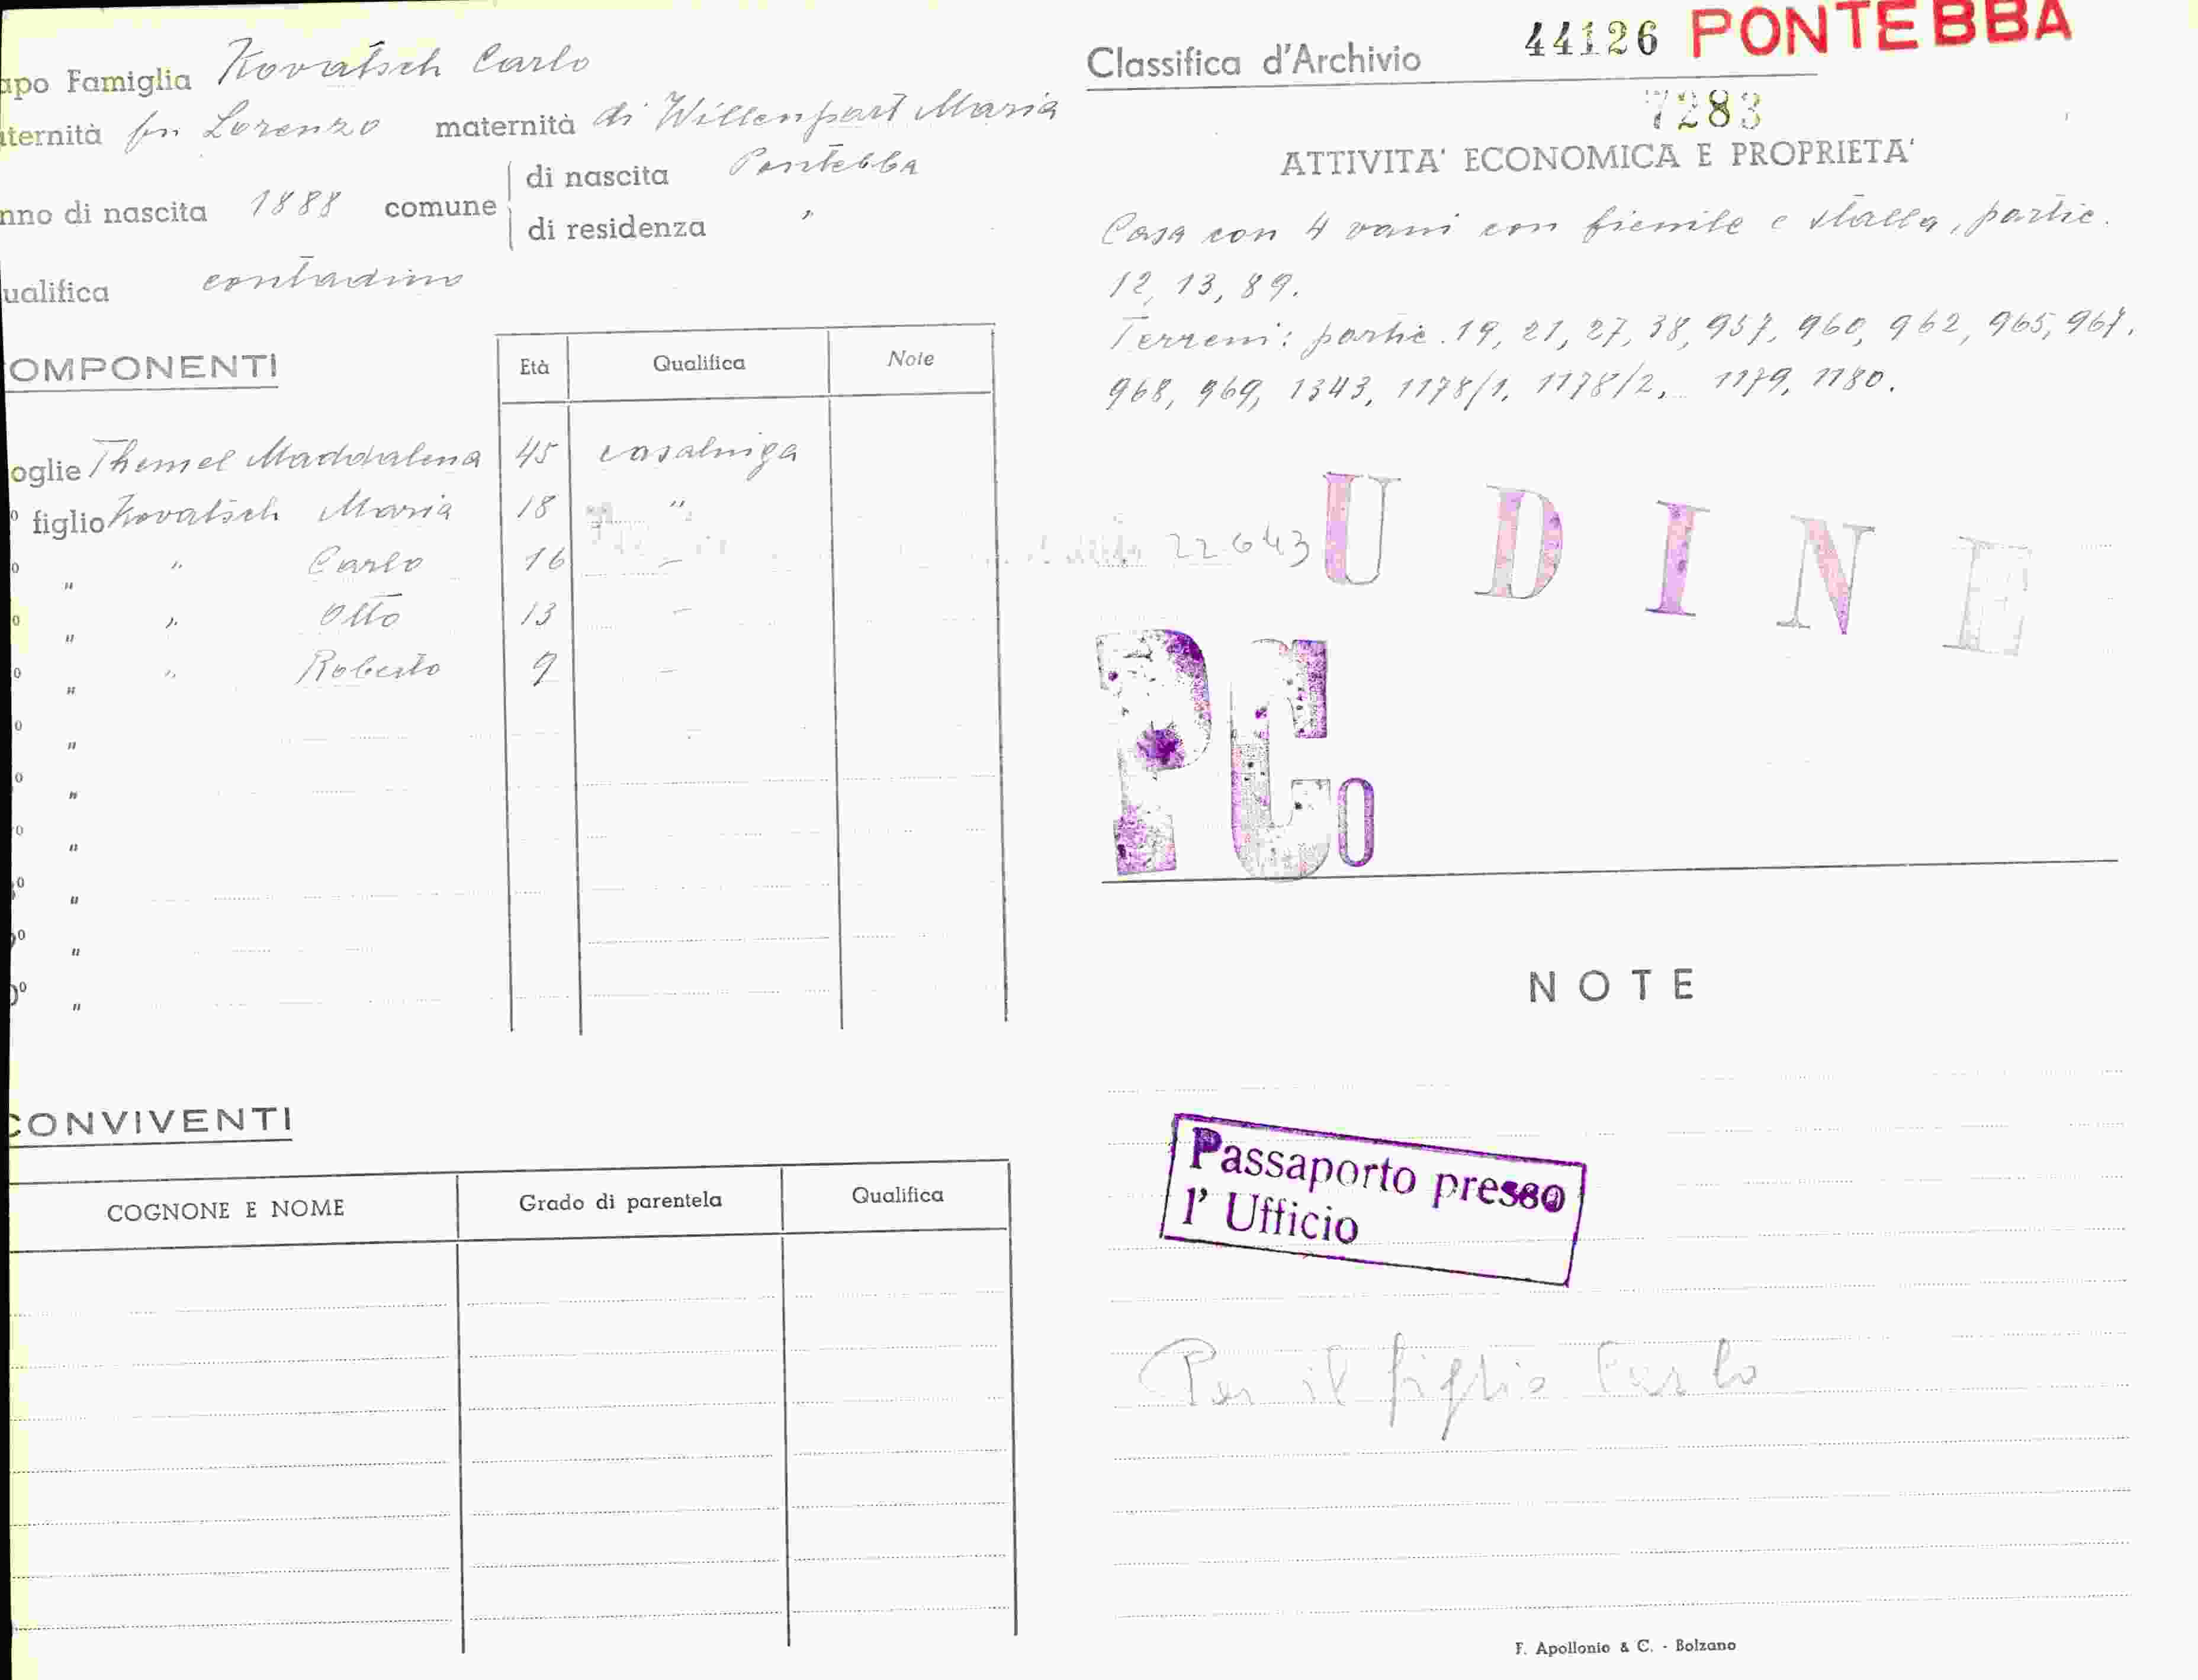 apo Famiglia Kovatsch Carlo
aternità fu Lorenzo maternità di Willenpart Maria
nno di nascita 1888 comune di nascita Pontebba
di residenza "
ualifica contadino
OMPONENTI Età Qualifica Note
oglie Themel Maddalena 45 casalniga
º figlio Kovatsch Maria 18 "
º " " Carlo 16 —
º " " Otto 13 —
º " " Roberto 9 —
º "
º "
º "
º "
º "
0º "
CONVIVENTI
COGNONE E NOME Grado di parentela Qualifica
Classifica d'Archivio 44126 PONTEBBA
7283
ATTIVITA' ECONOMICA E PROPRIETA'
Casa con 4 vani con fienile e stalla, partic.
12, 13, 89.
Terreni: partic. 19, 21, 27, 38, 957, 960, 962, 965, 967,
968, 969, 1343, 1178/1, 1178/2, 1179, 1180.
22643 UDINE
PCo
NOTE
Passaporto presso
l' Ufficio
Per il figlio Carlo
F. Apollonio & C. - Bolzano